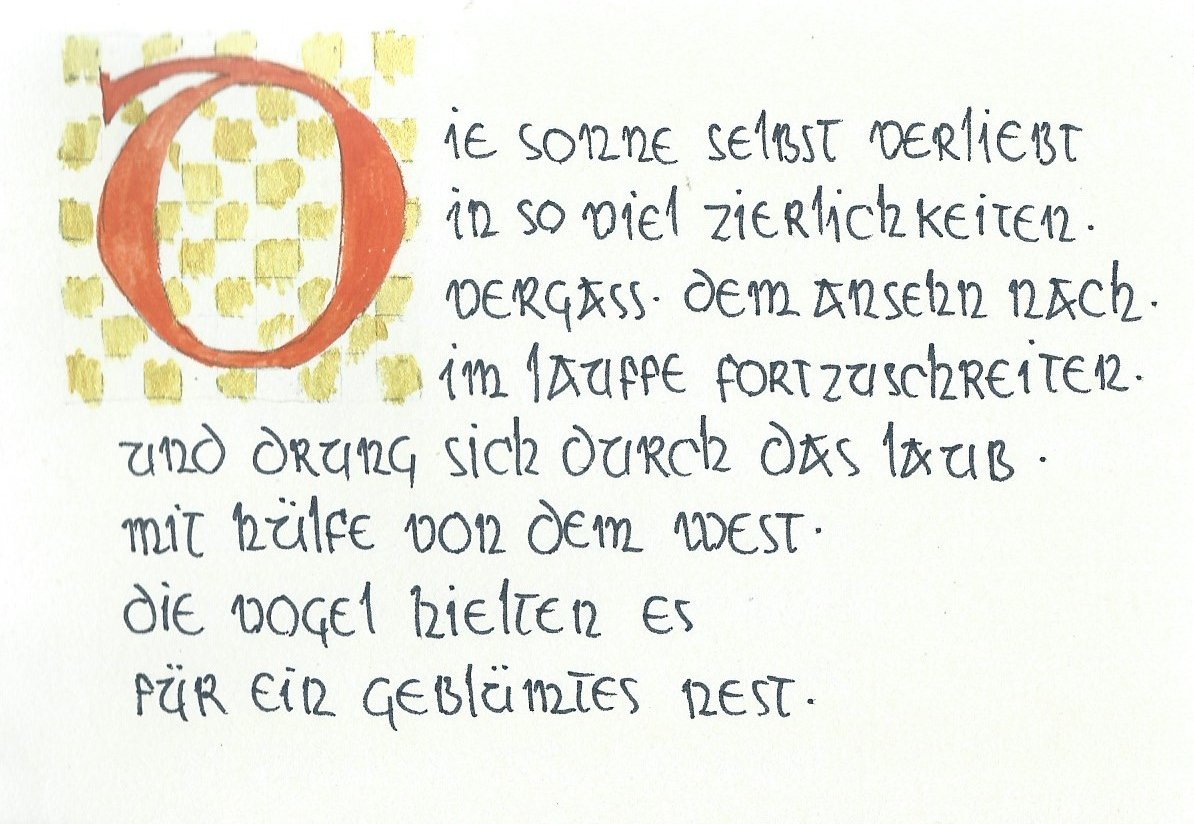 DIE SONNE SELBST VERLIEBT
IN SO VIEL ZIERLICHKEITEN.
VERGASS. DEM ANSEHN NACH.
IM LAUFFE FORTZUSCHREITEN.
UND DRUNG SICH DURCH DAS LAUB.
MIT HÜLFE VON DEM WEST.
DIE VOGEL HIELTEN ES
FÜR EIN GEBLÜMTES NEST.